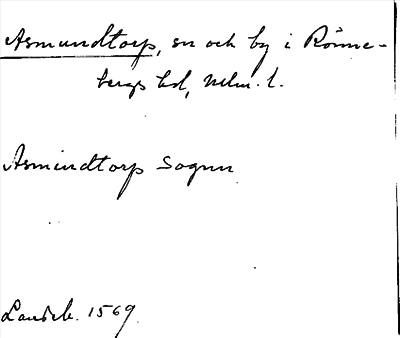 Asmundtorp, sn och by i Rönne-
bergs hd, Mlm. l.
Asmindtorp Sognn
Landsb. 1569